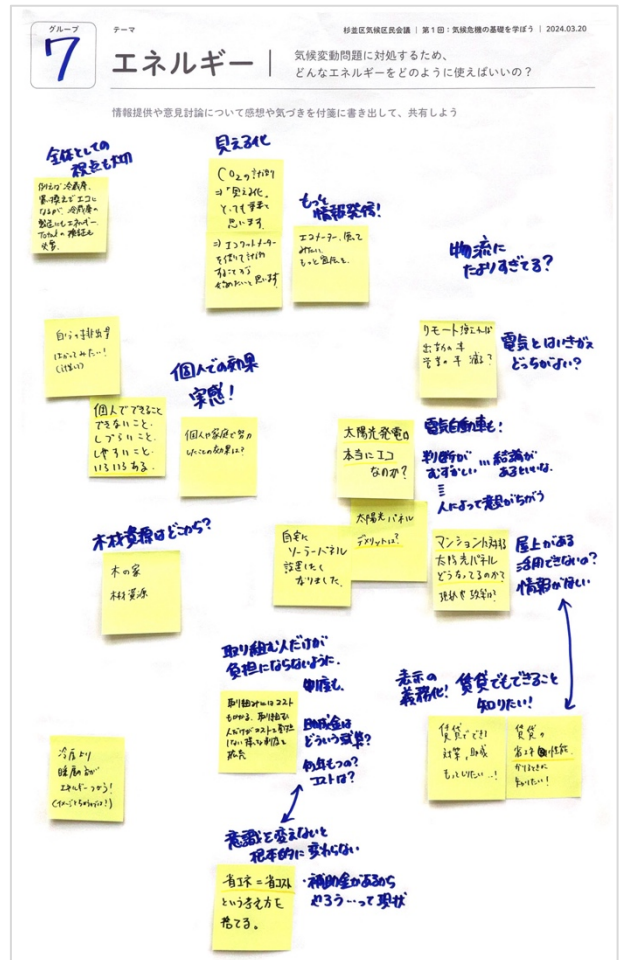 グループ
7
テーマ
エネルギー
杉並区気候区民会議 | 第1回：気候危機の基礎を学ぼう | 2024.03.20
気候変動問題に対処するため、
どんなエネルギーをどのように使えばいいの？
情報提供や意見討論について感想や気づきを付箋に書き出して、共有しよう
全体としての
視点も大切
例えば冷蔵庫、
買い換えでエコに
なるが、冷蔵庫の
製造にもエネルギー。
見える化
CO₂の
⇒「見える化」
とっても
思います
⇒エコワットメーター
を借りて
することから
始めたいと思います
もっと
情報発信！
エコメーター、借りて
みたい。
もっと宣伝を。
物流に
たよりすぎてる？
リモート
自分の排出量
はかってみたい！
電気とはいきがス
どっちがよい？
個人での効果
実感！
個人でできること
できないこと、
しづらいこと、
しやすいこと、
いろいろある。
個人や家庭で努力
したことの効果は？
太陽光発電は
本当にエコ
なのか？
電気自動車も！
判断が
むずかしい … 結論が
あるといいな。
人によって意見がちがう
太陽光パネル
デメリットは？
自宅に
ソーラーパネル
設置したく
なりました。
マンションに対する
太陽光パネル
どうなってるのか？
屋上がある
活用できないの？
情報がほしい
木材資源はどこから？
木の家
木材資源
取り組む人だけが
負担にならないように。
制度も、
取り組みにはコスト
もかかる。取り組む
人だけがコストを
しない様な制度を
拡充
助成金は
どういう試算？
何年もつの？
コストは？
表示の
義務化！
賃貸でもできること
知りたい！
賃貸でできる
対策、助成
もっとしりたい…！
賃貸の
省エネ性能
かりるときに
知りたい！
冷房より
暖房の方が
エネルギーつかう！
意識を変えないと
根本的に変わらない
省エネ＝省コスト
という考え方を
捨てる。
・補助金があるから
やろう…って現状